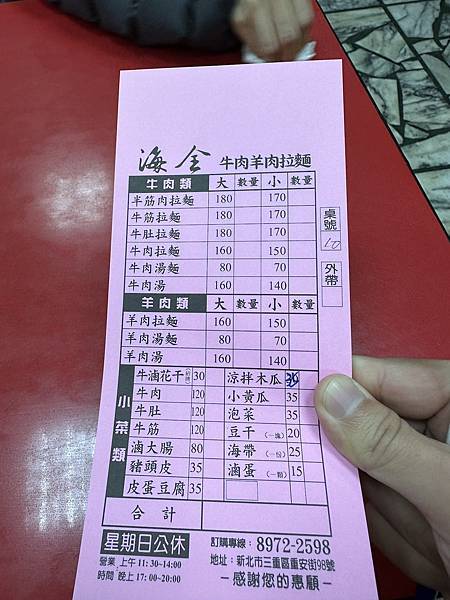 海全 牛肉羊肉拉麵
牛肉類 大 數量 小 數量
半筋肉拉麵 180 170
牛筋拉麵 180 170
牛肚拉麵 180 170
牛肉拉麵 160 150
牛肉湯麵 80 70
牛肉湯 160 140
桌號
10
外帶
羊肉類 大 數量 小 數量
羊肉拉麵 160 150
羊肉湯麵 80 70
羊肉湯 160 140
小菜類
牛滷花干 30 涼拌木瓜 35
牛肉 120 小黃瓜 35
牛肚 120 泡菜 35
牛筋 120 豆干(一塊) 20
滷大腸 80 海帶(一份) 25
豬頭皮 35 滷蛋(一顆) 15
皮蛋豆腐 35
合計
星期日公休 訂購專線：8972-2598
營業 上午 11:30~14:00 地址：新北市三重區重安街98號
時間 晚上 17:00~20:00 －感謝您的惠顧－